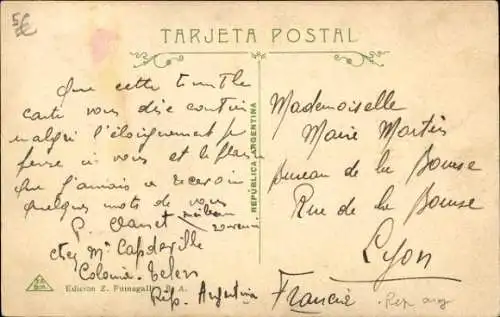 5€
TARJETA POSTAL
Que cette humble
carte vous dise combien
malgré l'éloignement je
pense à vous et le plaisir
que j'aurais à recevoir
quelques mots de vous
meilleur
P. Clauset souvenir
chez Mr Capdeville
Colonie
Rép. Argentina
REPÚBLICA ARGENTINA
Mademoiselle
Marie Martin
Bureau de la Bourse
Rue de la Bourse
Lyon
Francie
Rep arg
Edición Z. Fumagalli A.